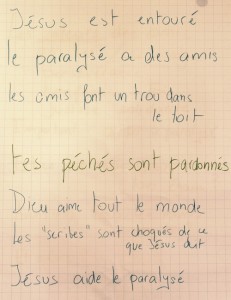 Jésus est entouré
le paralysé a des amis
les amis font un trou dans
le toit
tes péchés sont pardonnés
Dieu aime tout le monde
les "scribes" sont choqués de ce
que Jésus dit
Jésus aide le paralysé